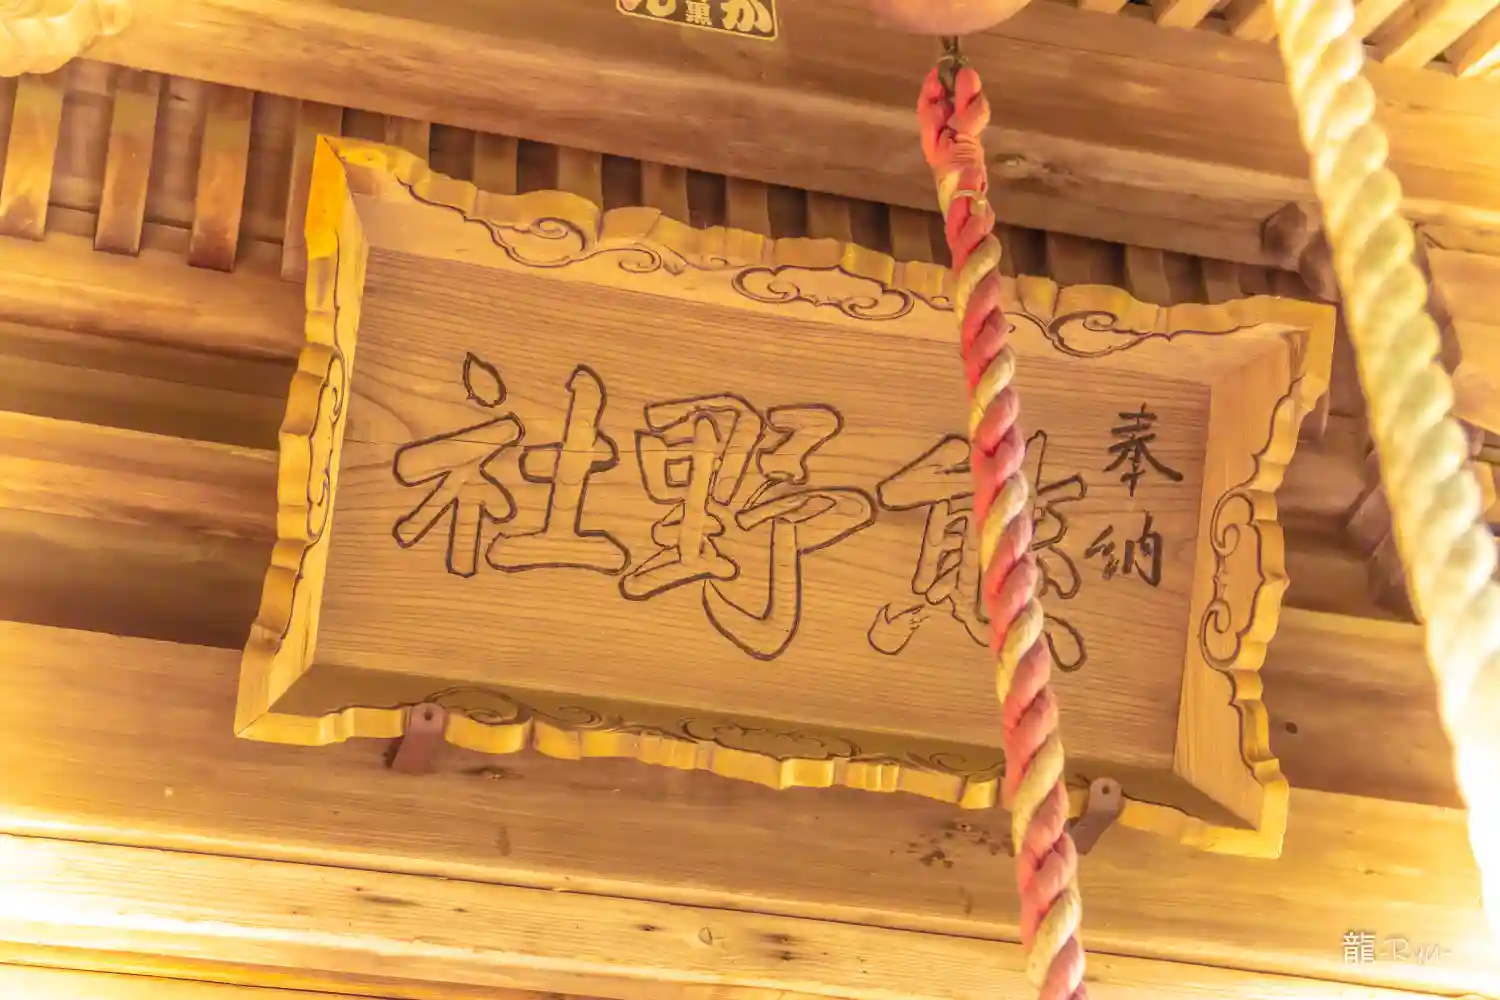 奉納
熊野社
龍-Ryu-